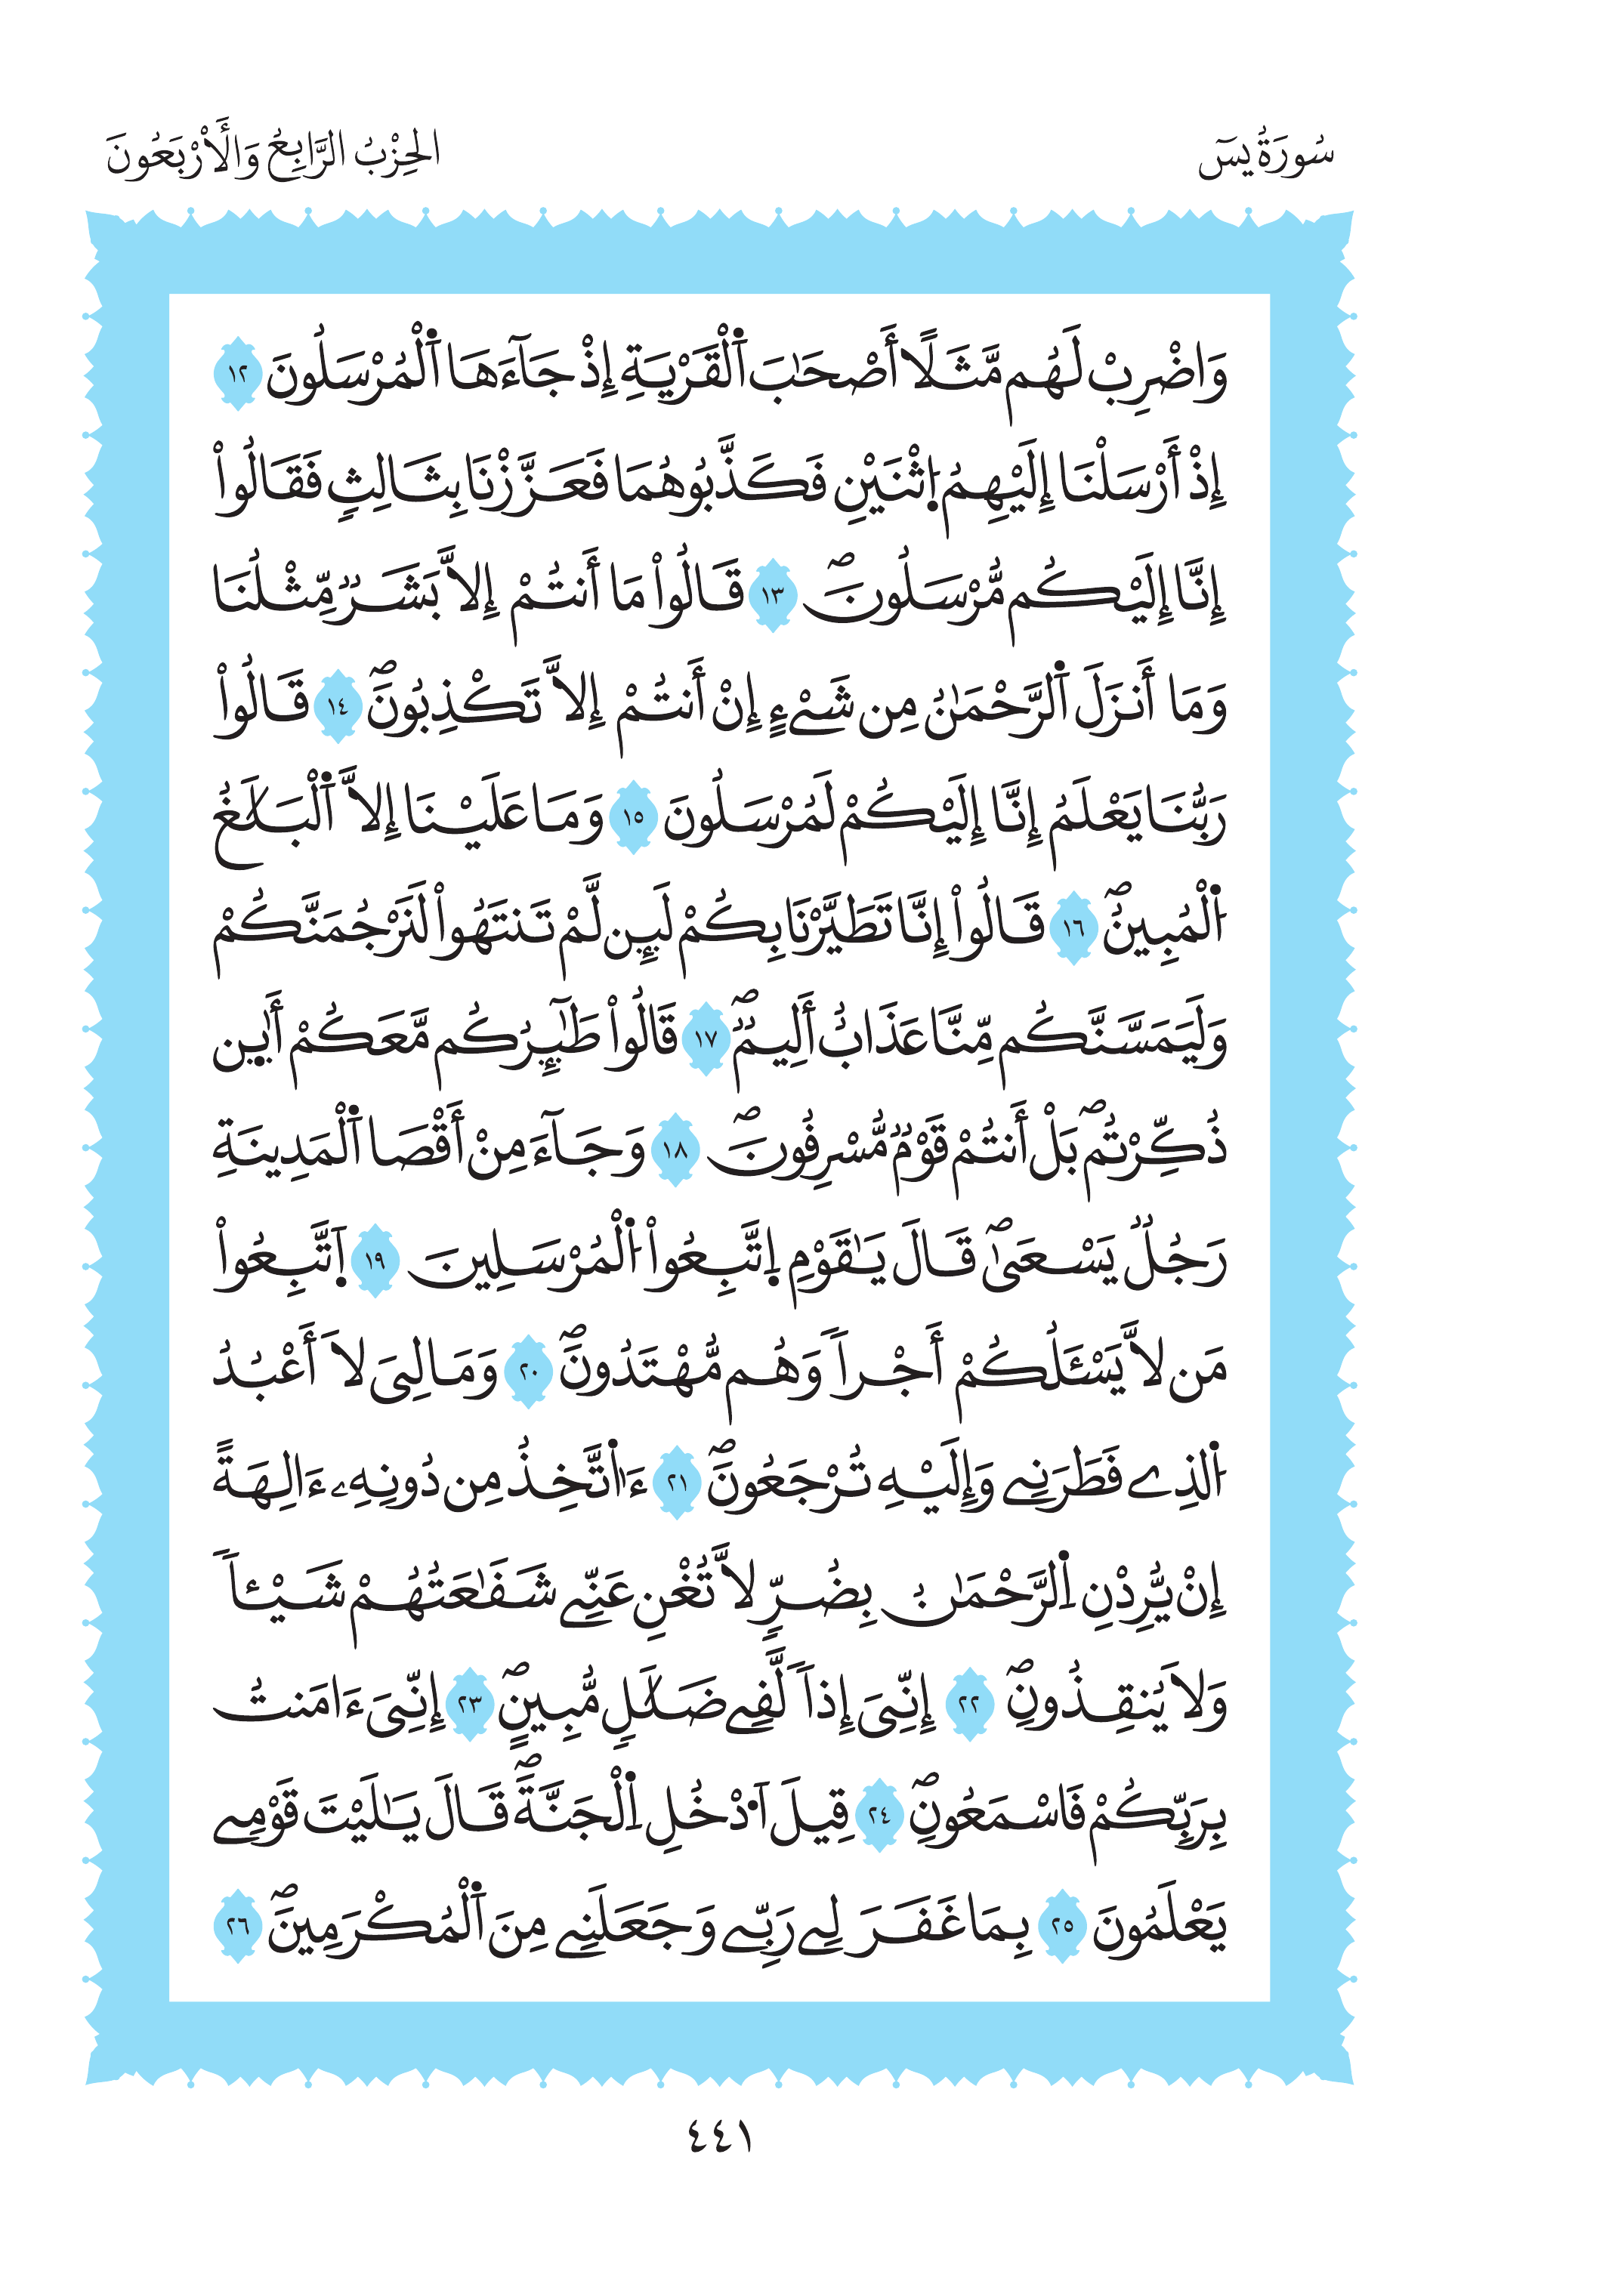 سُورَةُ يسٓ
الحِزْبُ الرَّابِعُ وَالْأَرْبَعُونَ
وَاضْرِبْ لَهُم مَّثَلًا أَصْحَٰبَ اَ۬لْقَرْيَةِ إِذْ جَآءَهَا اَ۬لْمُرْسَلُونَ ١٢
إِذْ أَرْسَلْنَا إِلَيْهِمُ اِ۪ثْنَيْنِ فَكَذَّبُوهُمَا فَعَزَّزْنَا بِثَالِثٍ فَقَالُواْ
إِنَّا إِلَيْكُم مُّرْسَلُونَۖ ١٣ قَالُواْ مَا أَنتُمْ إِلاَّ بَشَرٌ مِّثْلُنَا
وَمَا أَنزَلَ اَ۬لرَّحْمَٰنُ مِن شَےْءٍ إِنْ أَنتُمْ إِلاَّ تَكْذِبُونَۖ ١٤ قَالُواْ
رَبُّنَا يَعْلَمُ إِنَّا إِلَيْكُمْ لَمُرْسَلُونَ ١٥ وَمَا عَلَيْنَا إِلاَّ اَ۬لْبَلَٰغُ
اُ۬لْمُبِينُۖ ١٦ قَالُواْ إِنَّا تَطَيَّرْنَا بِكُمْ لَئِن لَّمْ تَنتَهُواْ لَنَرْجُمَنَّكُمْ
وَلَيَمَسَّنَّكُم مِّنَّا عَذَابٌ أَلِيمٌۖ ١٧ قَالُواْ طَٰٓئِرُكُم مَّعَكُمْ أَيْ۪ن
ذُكِّرْتُمۖ بَلْ أَنتُمْ قَوْمٌ مُّسْرِفُونَۖ ١٨ وَجَآءَ مِنْ أَقْصَا اَ۬لْمَدِينَةِ
رَجُلٌ يَسْعَىٰۖ قَالَ يَٰقَوْمِ اِ۪تَّبِعُواْ اُ۬لْمُرْسَلِينَ ١٩ اَ۪تَّبِعُواْ
مَن لاَّ يَسْـَٔلُكُمْ أَجْراً وَهُم مُّهْتَدُونَۖ ٢٠ وَمَا لِيَ لاَ أَعْبُدُ
اُ۬لذِے فَطَرَنِے وَإِلَيْهِ تُرْجَعُونَۖ ٢١ ءَا۬تَّخِذُ مِن دُونِهِۦ ءَالِهَةً
إِنْ يُّرِدْنِ اِ۬لرَّحْمَٰنُ بِضُرٍّ لاَّ تُغْنِ عَنِّے شَفَٰعَتُهُمْ شَيْـٔاً
وَلاَ يُنقِذُونِۖ ٢٢ إِنِّيَ إِذاً لَّفِے ضَلَٰلٍ مُّبِينٍۖ ٢٣ إِنِّيَ ءَامَنتُ
بِرَبِّكُمْ فَاسْمَعُونِۖ ٢٤ قِيلَ اَ۟دْخُلِ اِ۬لْجَنَّةَۖ قَالَ يَٰلَيْتَ قَوْمِے
يَعْلَمُونَ ٢٥ بِمَا غَفَرَ لِے رَبِّے وَجَعَلَنِے مِنَ اَ۬لْمُكْرَمِينَۖ ٢٦
٤٤١